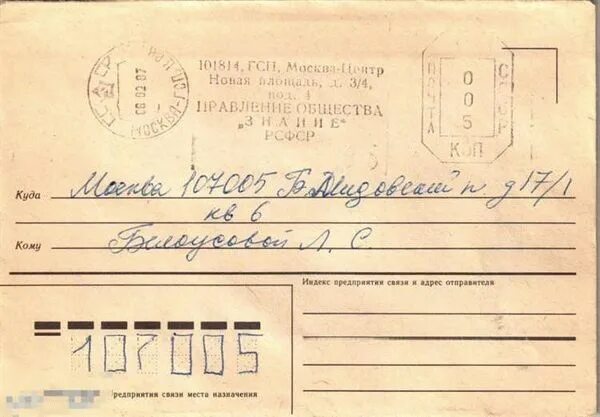 СССР
МОСКВА
06 02 87
101814, ГСП, Москва-Центр
Новая площадь, д. 3/4,
под. 4
ПРАВЛЕНИЕ ОБЩЕСТВА
„ЗНАНИЕ“
РСФСР
ПОЧТА
005
КОП
СССР
Куда Москва 107005 Б. Демидовский п. д 17/1
кв 6
Кому Белоусовой Л. С.
Индекс предприятия связи и адрес отправителя
107005
предприятия связи места назначения